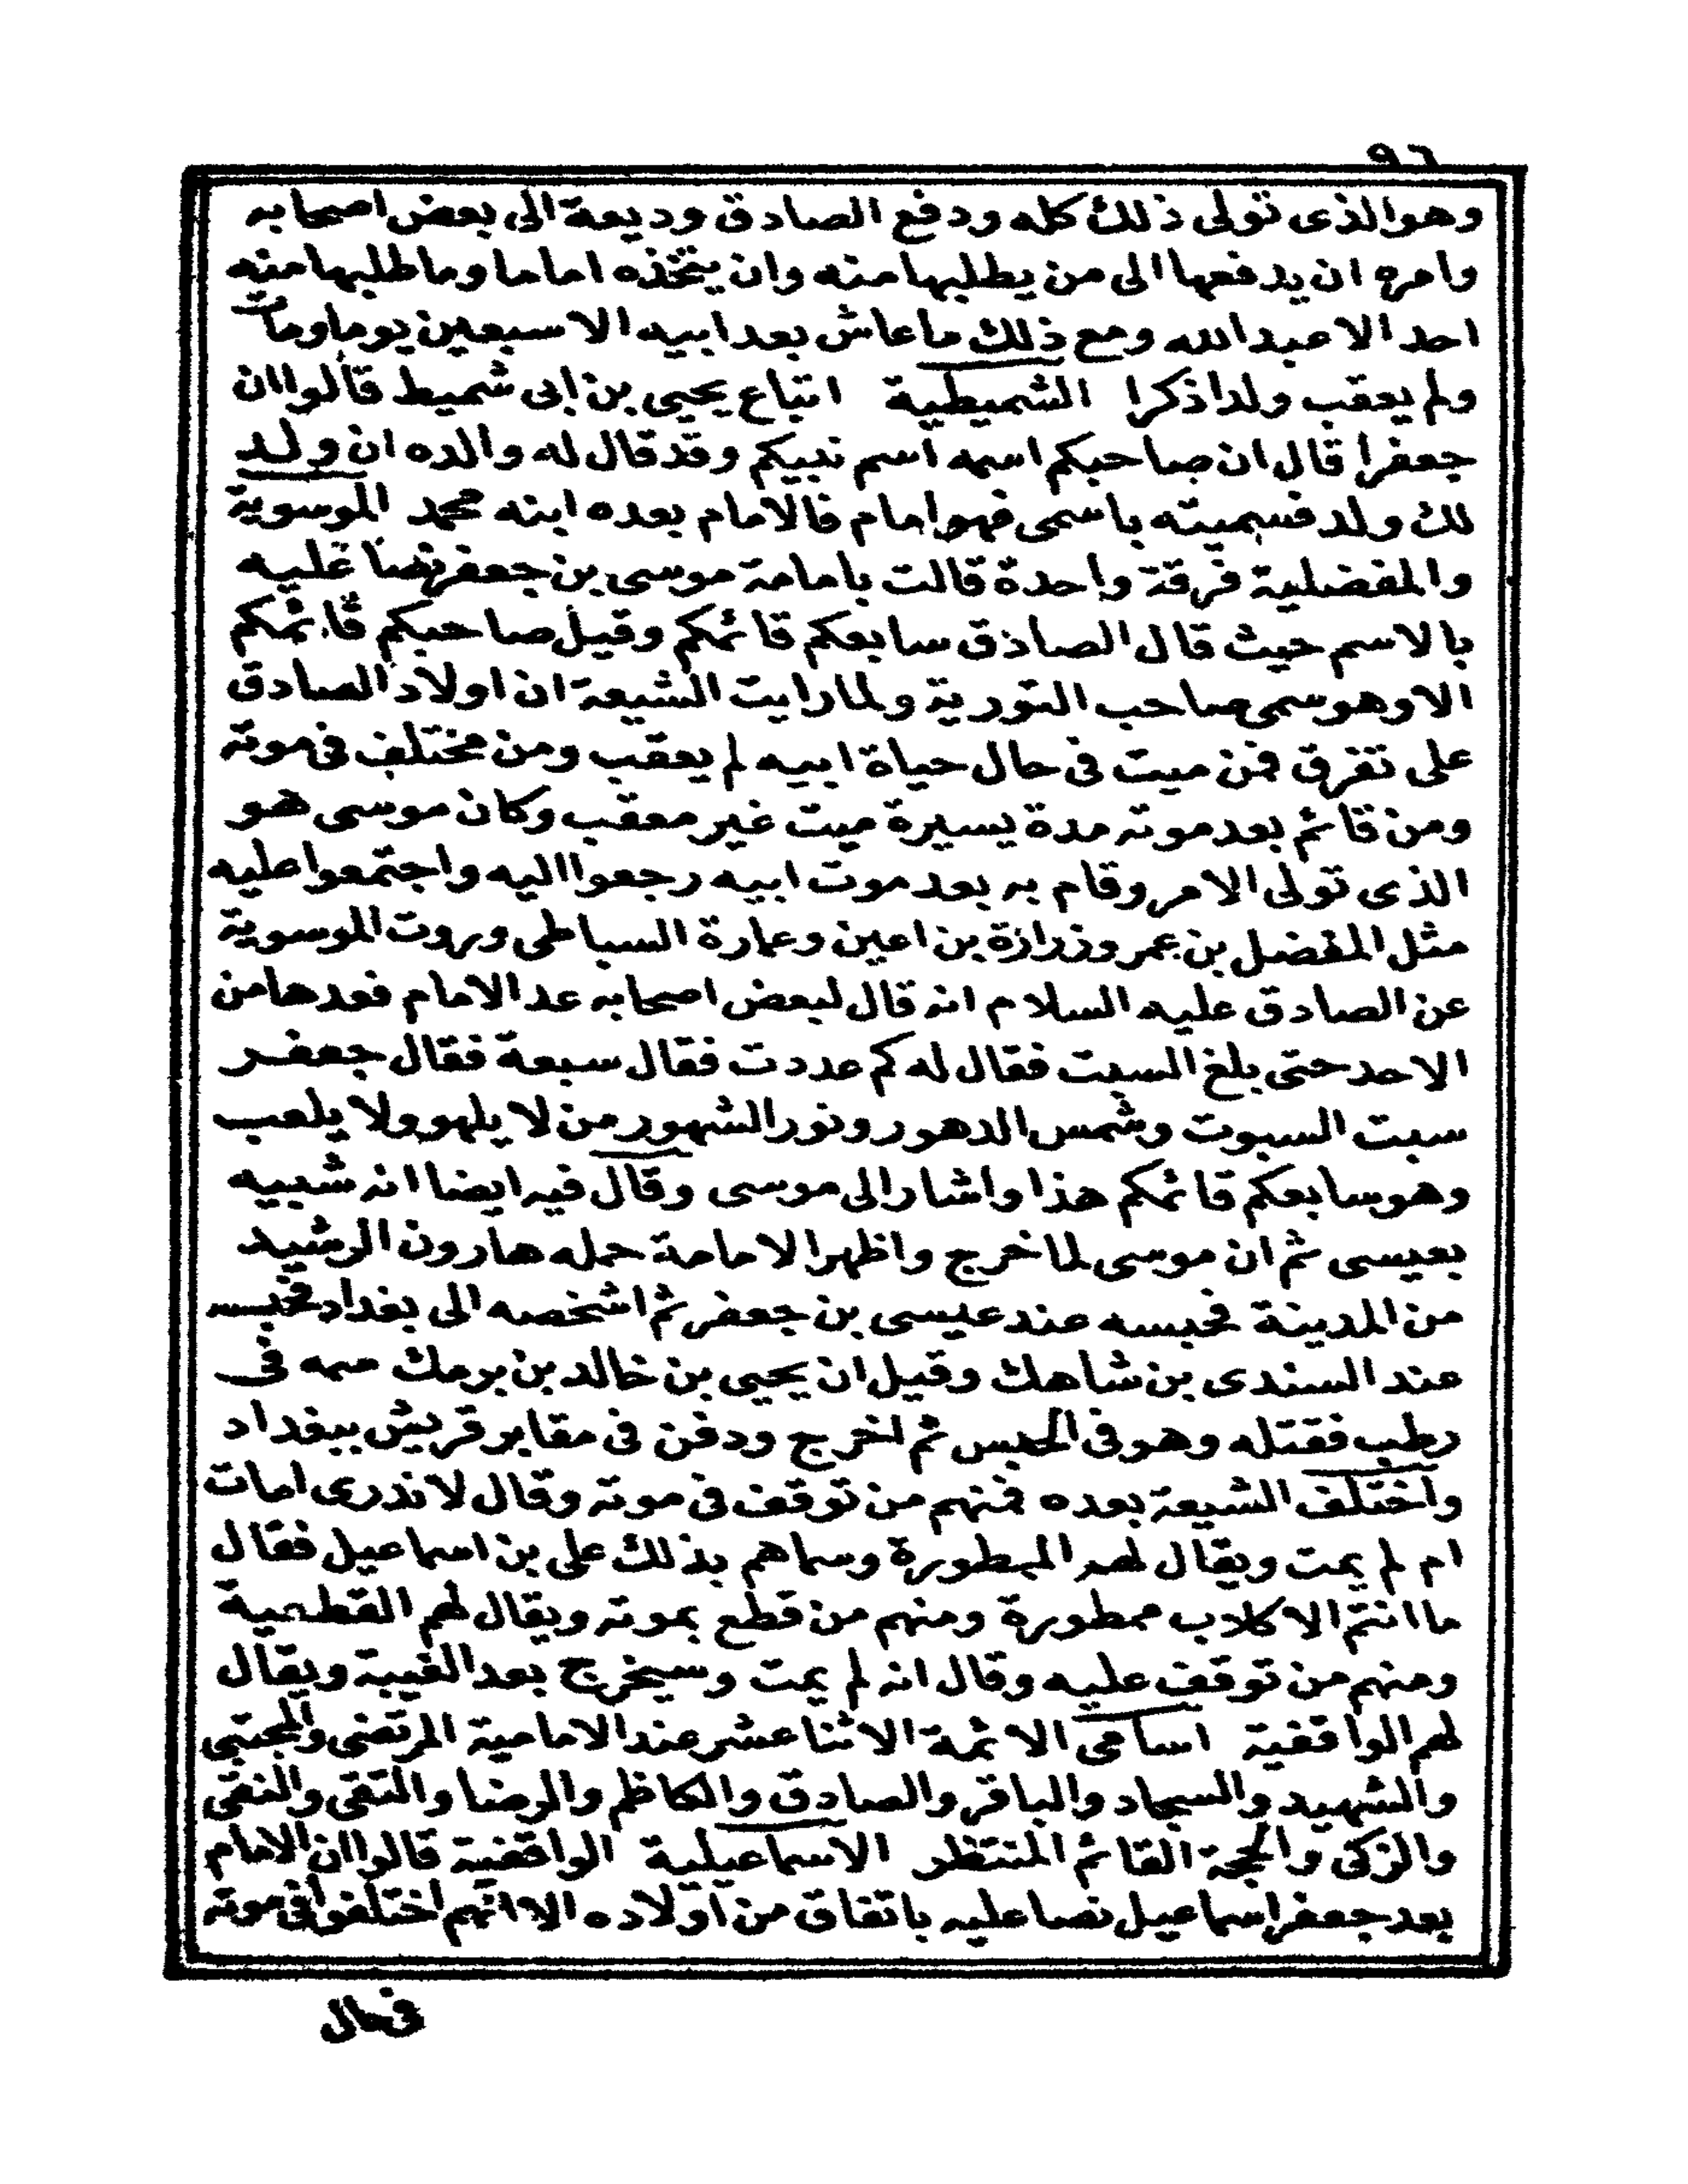 ٩٦
وهوالذى تولى ذلك كله ودفع الصادق وديعة الى بعض اصحابه
وامره ان يدفعها الى من يطلبها منه وان يتخذه اماما وما طلبها منه
احد الا عبدالله ومع ذلك ما عاش بعد ابيه الا سبعين يوما ومات
ولم يعقب ولدا ذكرا الشميطية اتباع يحيى بن ابى شميط قالوا ان
جعفرا قال ان صاحبكم اسمه اسم نبيكم وقد قال له والده ان ولد
لك ولد فسميته باسمى فهو امام فالامام بعده ابنه محمد الموسوية
والمفضلية فرقة واحدة قالت بامامة موسى بن جعفر نصا عليه
بالاسم حيث قال الصادق سابعكم قائمكم وقيل صاحبكم قائمكم
الا وهو سمى صاحب التورية ولما رايت الشيعة ان اولاد الصادق
على تفرق فمن ميت فى حال حياة ابيه لم يعقب ومن مختلف فى موته
ومن قائم بعد موته مدة يسيرة ميت غير معقب وكان موسى هو
الذى تولى الامر وقام به بعد موت ابيه رجعوا اليه واجتمعوا عليه
مثل المفضل بن عمر وزرارة بن اعين وعمارة السباطى وروت الموسوية
عن الصادق عليه السلام انه قال لبعض اصحابه عد الامام فعدها من
الاحد حتى بلغ السبت فقال له كم عددت فقال سبعة فقال جعفر
سبت السبوت وشمس الدهور ونور الشهور من لا يلهو ولا يلعب
وهو سابعكم قائمكم هذا واشار الى موسى وقال فيه ايضا انه شبيه
بعيسى ثم ان موسى لما خرج واظهر الامامة حمله هارون الرشيد
من المدينة فحبسه عند عيسى بن جعفر ثم اشخصه الى بغداد فحبسه
عند السندى بن شاهك وقيل ان يحيى بن خالد بن برمك سمه فى
رطب فقتله وهو فى الحبس ثم اخرج ودفن فى مقابر قريش ببغداد
واختلف الشيعة بعده فمنهم من توقف فى موته وقال لا ندرى امات
ام لم يمت ويقال لهم الممطورة وسماهم بذلك على بن اسماعيل فقال
ما انتم الا كلاب ممطورة ومنهم من قطع بموته ويقال لهم القطعية
ومنهم من توقف عليه وقال انه لم يمت وسيخرج بعد الغيبة ويقال
لهم الواقفية اسامى الائمة الاثنا عشر عند الامامية المرتضى والمجتبى
والشهيد والسجاد والباقر والصادق والكاظم والرضا والتقى والنقى
والزكى والحجة القائم المنتظر الاسماعيلية الواقفية قالوا ان الامام
بعد جعفر اسماعيل نصا عليه باتفاق من اولاده الا انهم اختلفوا فى موته
فى حال